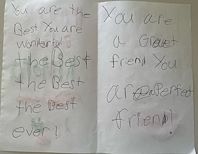 You are the
Best You are
wonderful
the Best
the Best
the Best
ever!
You are
a Great
frend You
are a Perfect
friend!